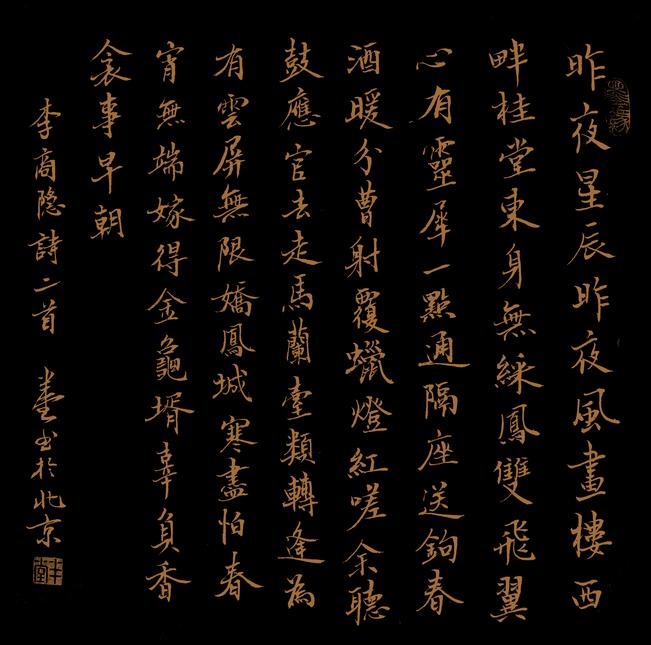 昨夜星辰昨夜風畫樓西
畔桂堂東身無綵鳳雙飛翼
心有靈犀一點通隔座送鉤春
酒暖分曹射覆蠟燈紅嗟余聽
鼓應官去走馬蘭臺類轉蓬為
有雲屏無限嬌鳳城寒盡怕春
宵無端嫁得金龜壻辜負香
衾事早朝
李商隐詩二首 書於北京